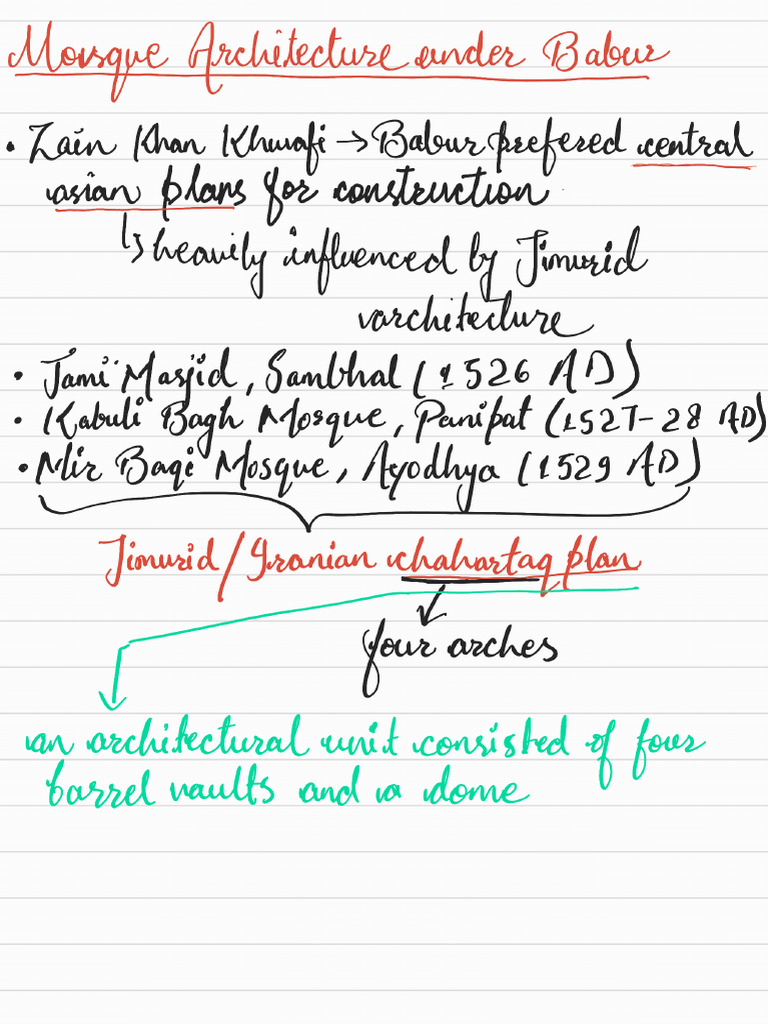 Mosque Architecture under Babur
• Zain Khan Khwafi → Babur prefered central
asian plans for construction
↳ heavily influenced by Timurid
architecture
• Jami Masjid, Sambhal (1526 AD)
• Kabuli Bagh Mosque, Panipat (1527-28 AD)
• Mir Baqi Mosque, Ayodhya (1529 AD)
Timurid/Iranian chahartaq plan
four arches
an architectural unit consisted of four
barrel vaults and a dome